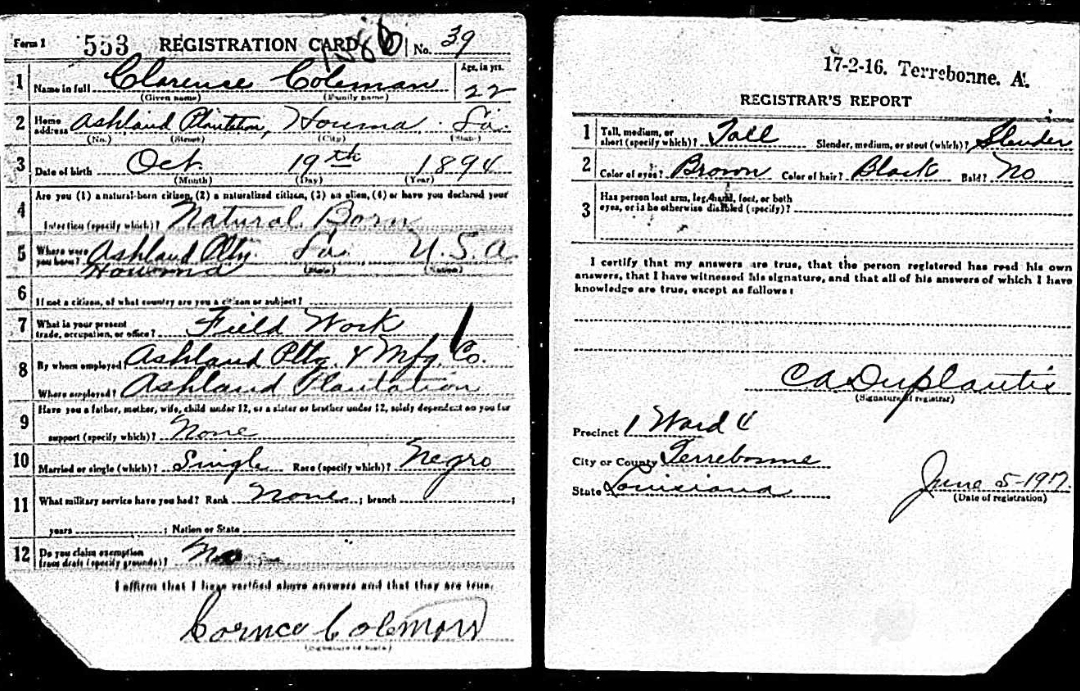 Form 1 553 REGISTRATION CARD No. 39
1 Name in full Clarence Coleman Age, in yrs. 22
(Given name) (Family name)
2 Home address Ashland Plantation, Houma La.
(No.) (Street) (City) (State)
3 Date of birth Oct. 19th 1894
(Month) (Day) (Year)
4 Are you (1) a natural-born citizen, (2) a naturalized citizen, (3) an alien, (4) or have you declared your
intention (specify which)? Natural Born
5 Where were you born? Ashland Pltg. La. U.S.A
Houma (State) (Nation)
6 If not a citizen, of what country are you a citizen or subject?
7 What is your present trade, occupation, or office? Field Work
8 By whom employed? Ashland Pltg & Mfg. Co.
Where employed? Ashland Plantation
9 Have you a father, mother, wife, child under 12, or a sister or brother under 12, solely dependent on you for
support (specify which)? None
10 Married or single (which)? Single Race (specify which)? Negro
11 What military service have you had? Rank None ; branch ;
years ; Nation or State
12 Do you claim exemption from draft (specify grounds)? No
I affirm that I have verified above answers and that they are true.
Colemon
(Signature or mark)
17-2-16. Terrebonne. A.
REGISTRAR'S REPORT
1 Tall, medium, or short (specify which)? Tall Slender, medium, or stout (which)? Slender
2 Color of eyes? Brown Color of hair? Black Bald? No
3 Has person lost arm, leg, hand, foot, or both
eyes, or is he otherwise disabled (specify)?
I certify that my answers are true, that the person registered has read his own
answers, that I have witnessed his signature, and that all of his answers of which I have
knowledge are true, except as follows:
C A Duplantis
(Signature of registrar)
Precinct 1 Ward 4
City or County Terrebonne
State Louisiana
June 5-1917.
(Date of registration)